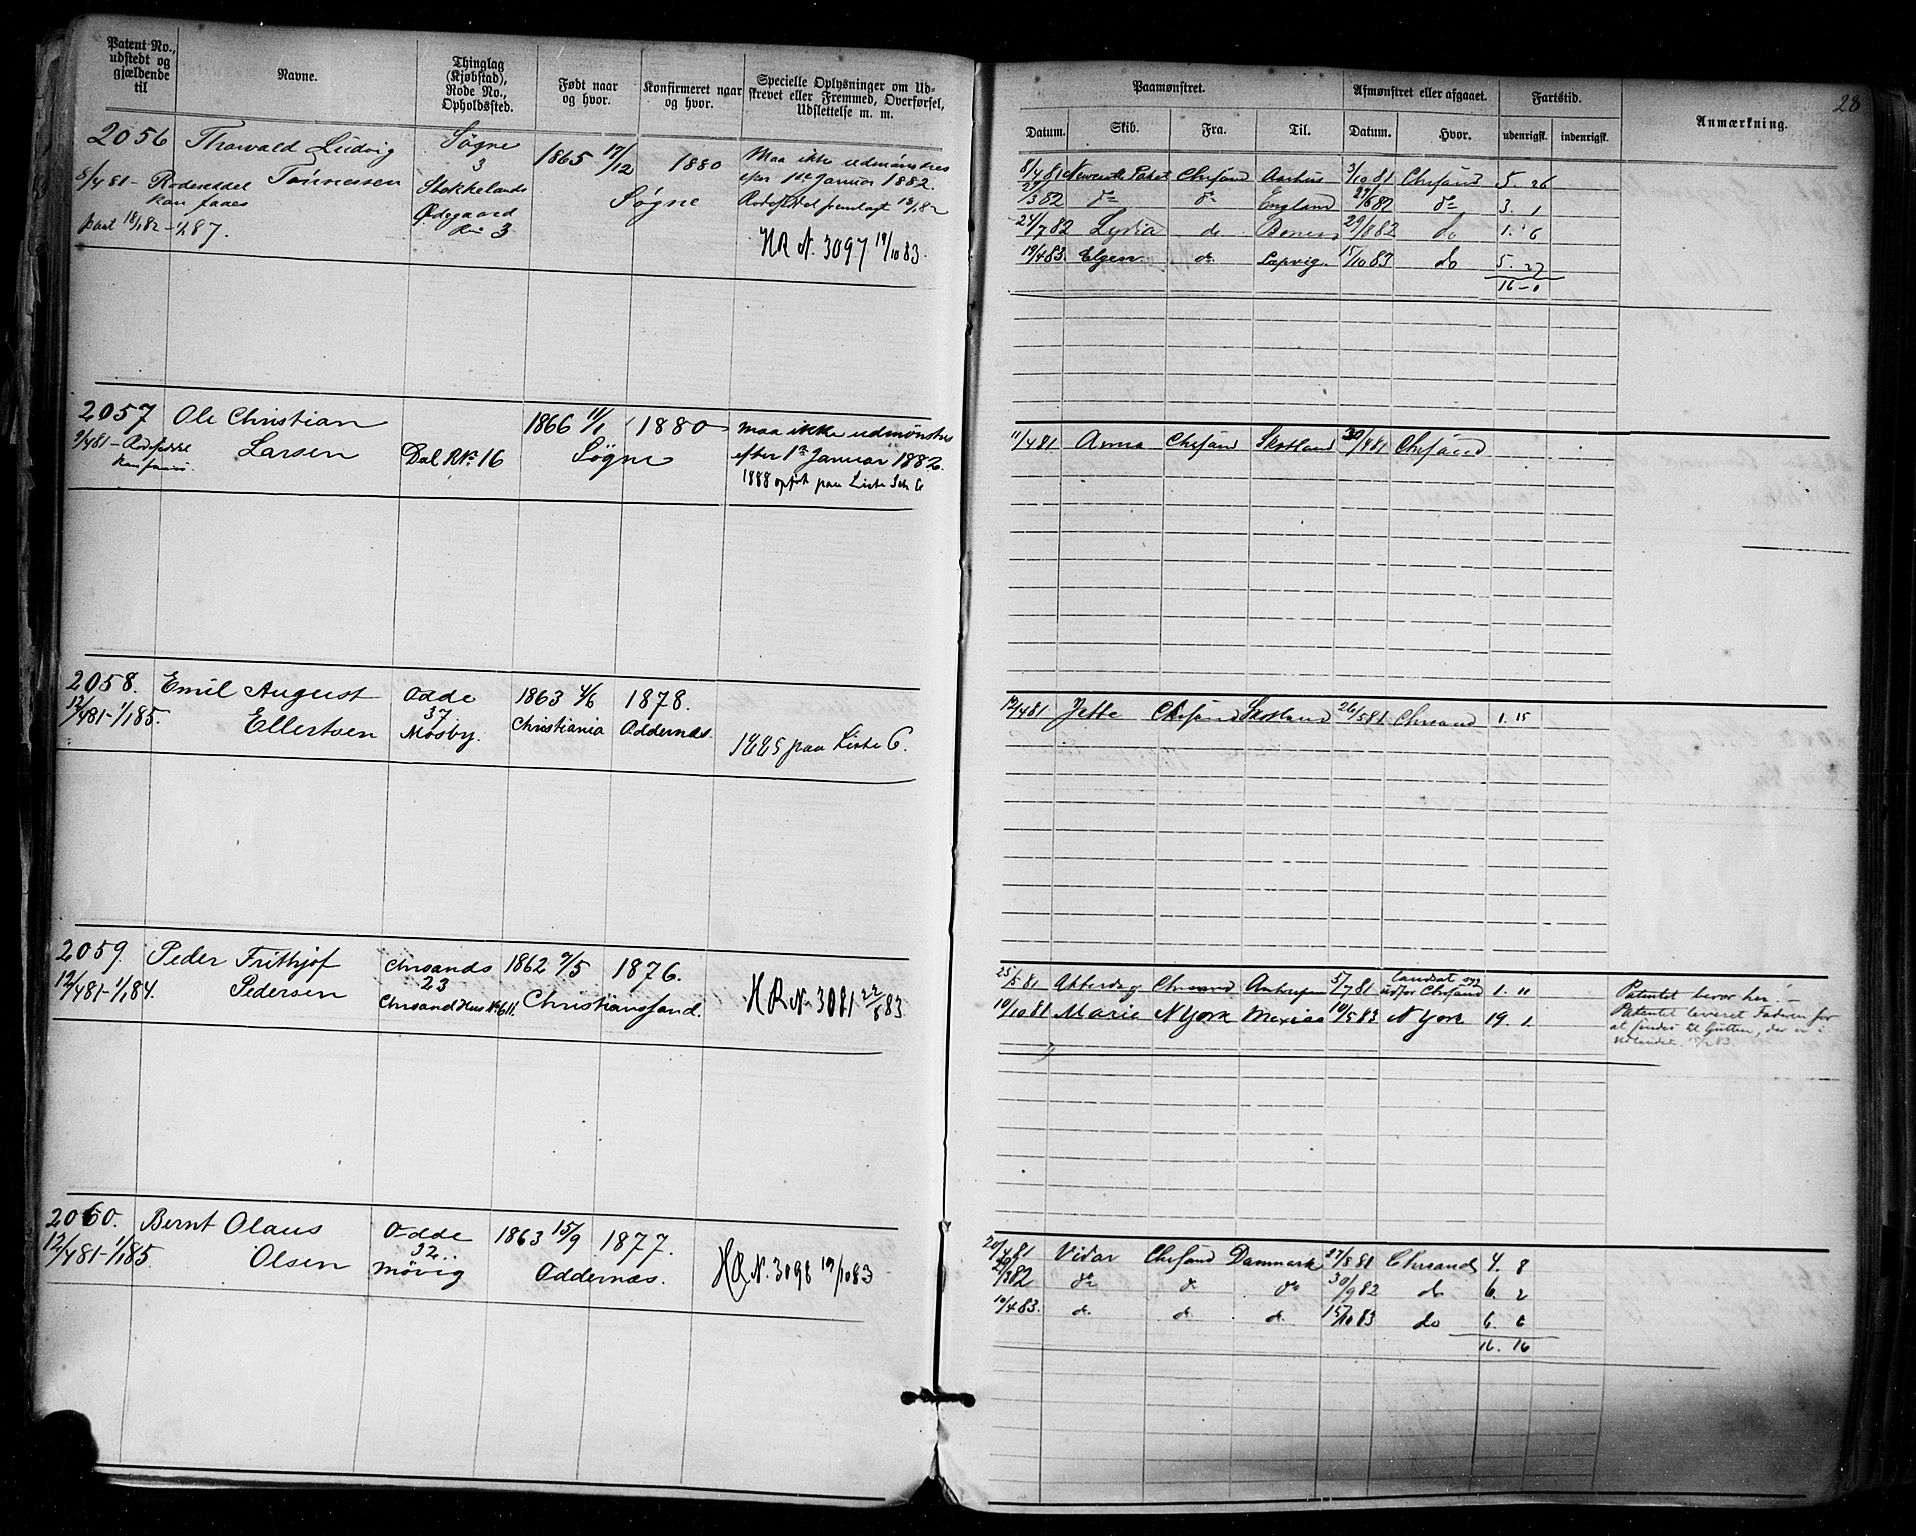 Patent No., udstedt og gjældende til
Navne.
Thinglag (Kjøbstad), Rode No., Opholdssted.
Født naar og hvor.
Konfirmeret naar og hvor.
Specielle Oplysninger om Udskrevet eller Fremmed, Overførsel, Udslettelse m. m.
Paamønstret.
Afmønstret eller afgaaet.
Fartstid.
Anmærkning.
28
Datum.
Skib.
Fra.
Til.
Datum.
Hvor.
udenrigsk.
indenrigsk.
2056
Thorvald Ludvig
Tønnessen
8/4 81 - Rodeseddel
kan faaes
18/1 82 - 1/1 87.
Søgne
3
Stokkelands
Ødegaard
3
1865 17/12
1880
Søgne
Maa ikke udmønstres
efter 1ste Januar 1882.
HR N. 3097 19/10 83.
8/4 81 Newcastle Paket Chrsand Aarhus 3/10 81 Chrsand 5. 26
27/3 82 do do England 27/6 82 do 3. 1
24/7 82 Lydia do Boness 29/8 82 do 1. 6
19/4 83 Elgen do 15/10 83 do 5. 27
16 - 0
2057
Ole Christian
Larsen
9/4 81 -
Dal R No 16
1866 11/1
Søgne
1880
Maa ikke udmønstres
efter 1ste Januar 1882.
1888 opført paa Liste C
11/4 81 Anna Chrsand Skotland 30/4 81 Chrsand
2058.
Emil August
Ellertsen
12/4 81 - 1/1 85.
Odde
37
Mosby.
1863 4/6
Christiania
1878.
Oddernæs.
1885 paa Liste C.
12/4 81 Jette Chrsand Skotland 26/5 81 Chrsand 1. 15
2059.
Peder Frithjof
Pedersen
12/4 81 - 1/1 84.
Chrsands
23
Chrsand Hus No 611.
1862 9/5
1876.
Christianssand.
HR N. 3081 22/8 83.
25/5 81 Chrsand Antwerpen 5/7 81 udfor Chrsand 1. 11
10/10 81 Marie N York Mexico 10/5 83 N York 19. 1.
Patentet beror her. -
Patentet leveret Faderen for
at sendes til Gutten, der er i
Udlandet. 83.
2060.
Bernt Olaus
Olsen
12/4 81 - 1/1 85.
Odde
32.
Møvig
1863 15/9
1877.
Oddernæs.
HR N. 3098 19/10 83
20/4 81 Vidar Chrsand Danmark 27/8 81 Chrsand 4. 8
29/3 82 do do do 30/9 82 do 6. 2
10/4 83. do do do 15/10 83 do 6. 6
16. 16